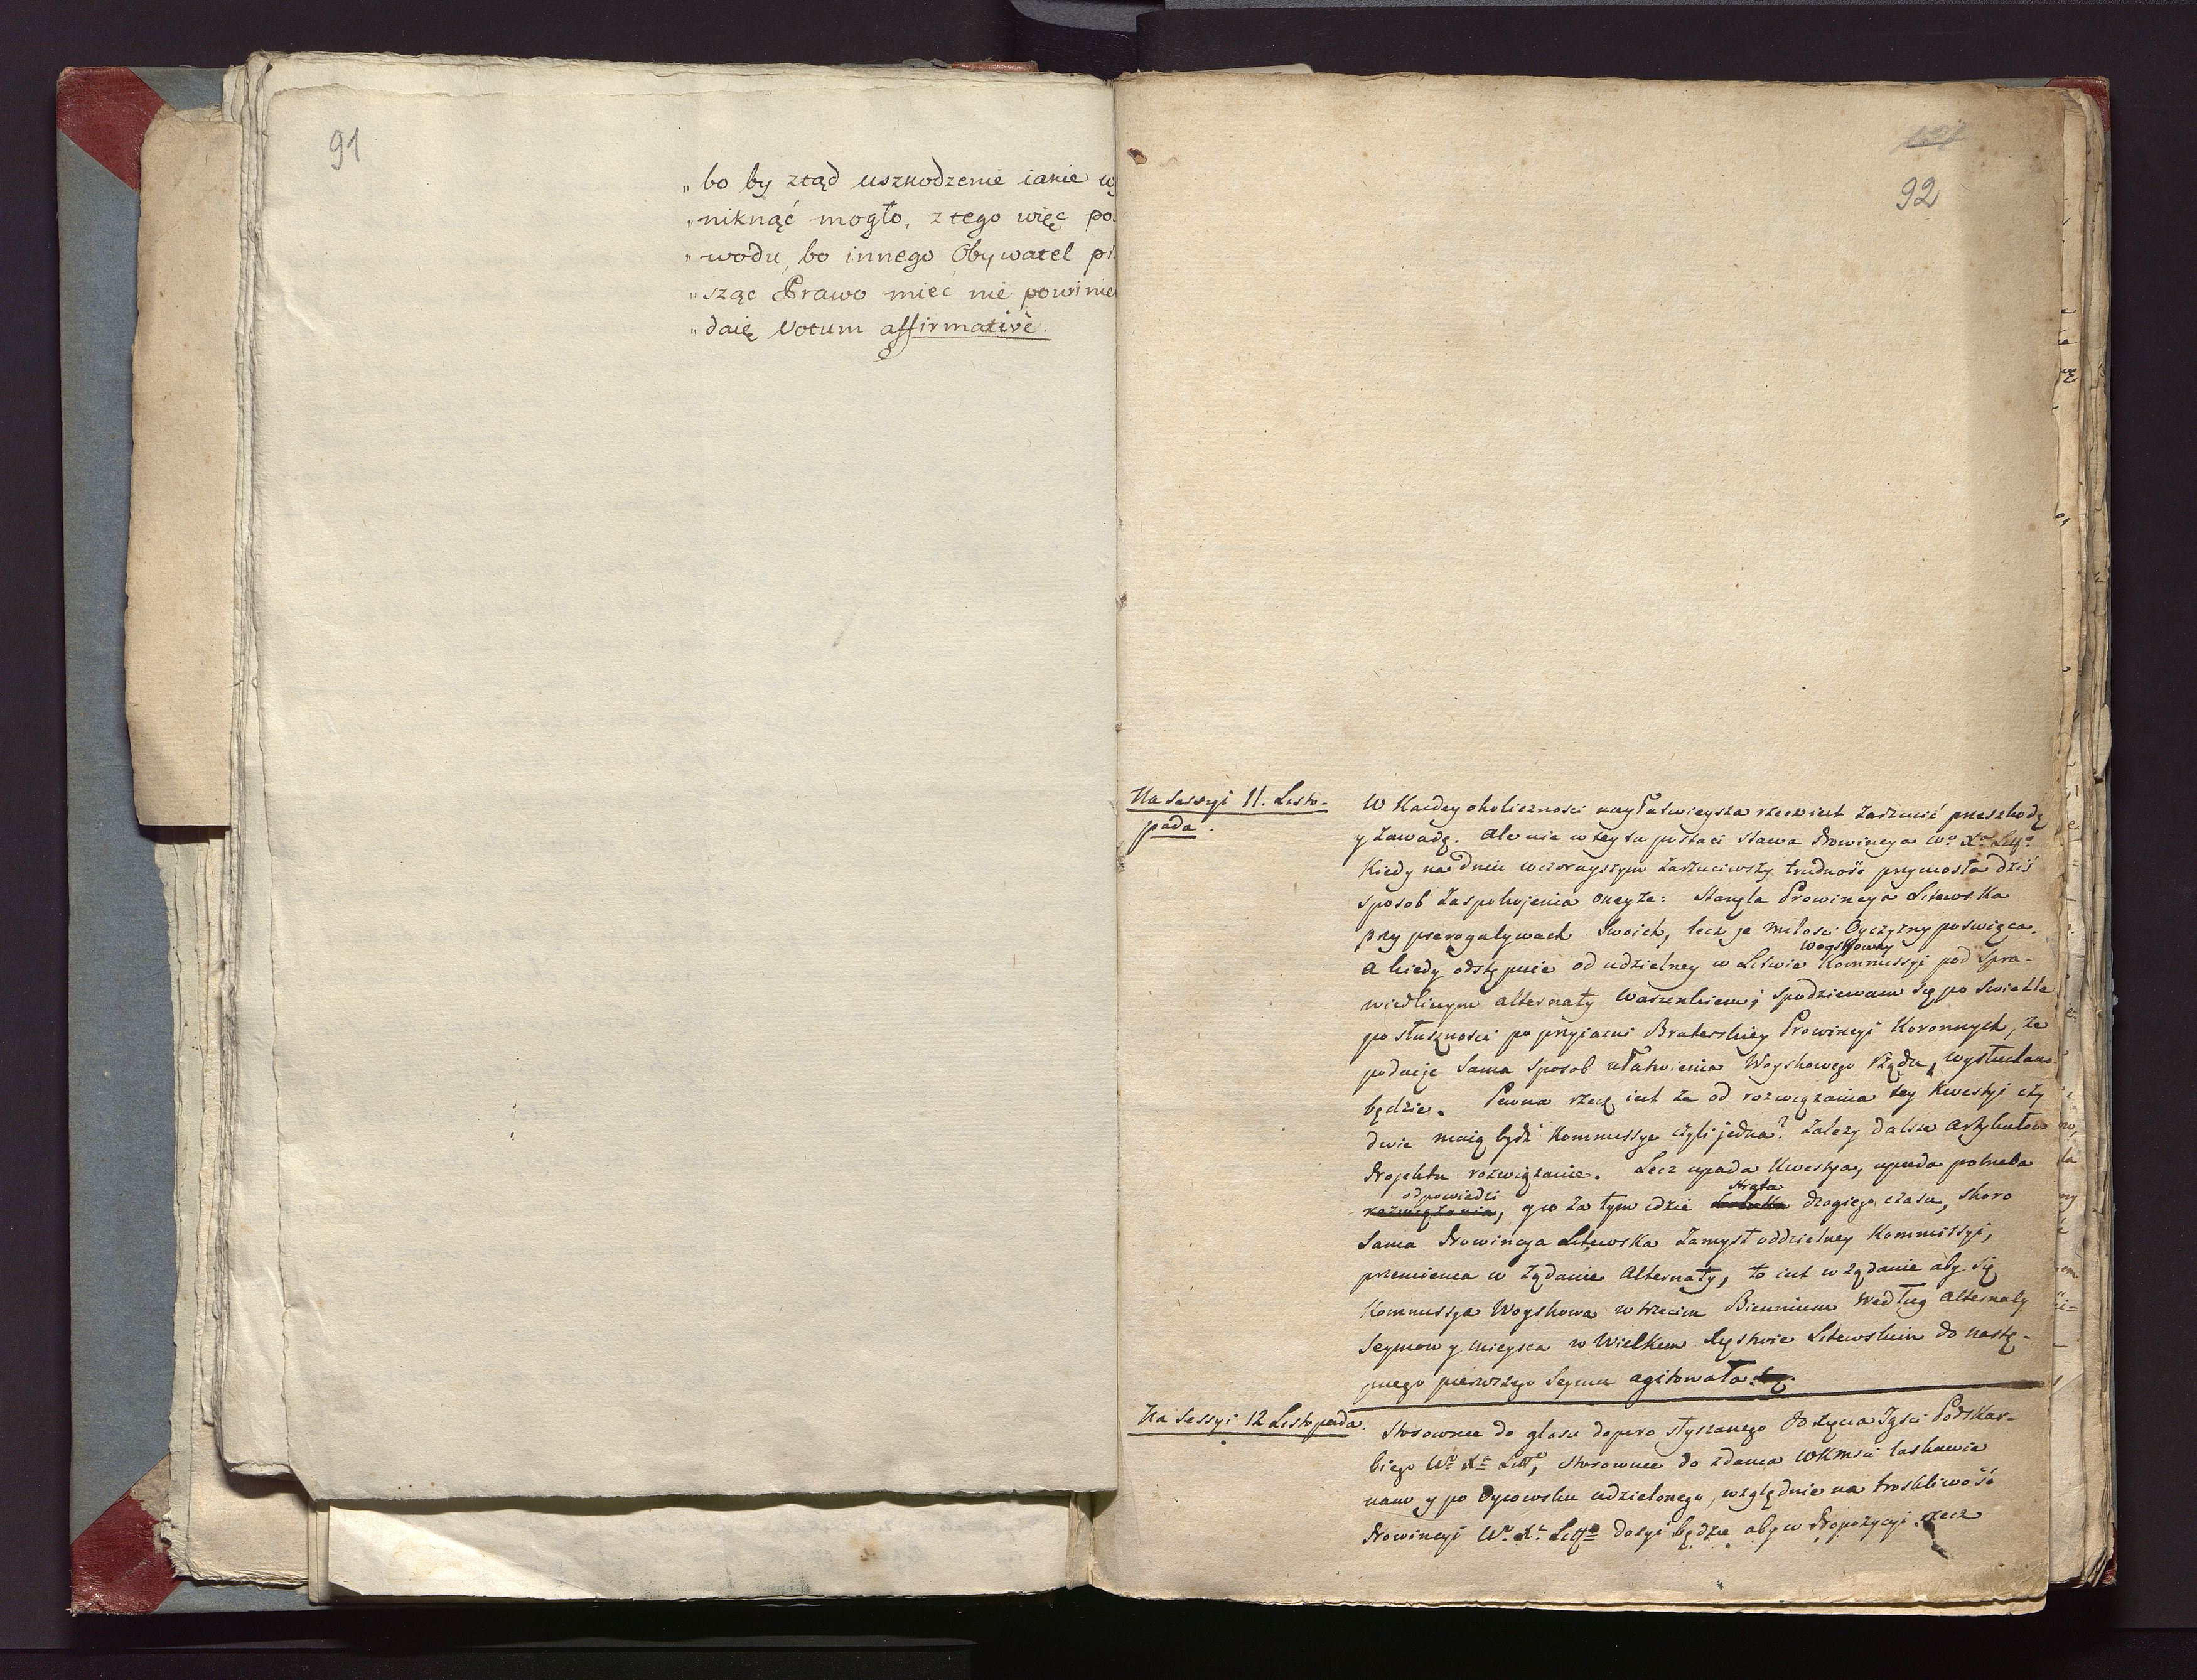 91
„bo by ztąd uszkodzenie iakie wy
„niknąć mogło, z tego więc po-
„wodu, bo innego Obywatel pi
„sząc Prawo mieć nie powinie
„daię Votum affirmativè.
92
Na Sessyi 11. Listo-
pada.
W Każdey okoliczności nayłatwieysza rzecz iest zarzucić przeszkodę
y zawadę. Ale nie w tey tu postaci stawa Prowincya Wo Xa Litto
Kiedy na dniu wczorayszym zarzuciwszy trudność przyniosła dziś
sposob zaspokojenia oneyże: Stanęła Prowincya Litewska
przy prerogatywach swoich, lecz je miłości Oyczyzny poswięca.
Woyskowey
A kiedy odstępuie od udzielney w Litwie Kommissyi pod spra-
wiedliwym alternaty warunkiem; spodziewam się po swietle
po słuszności po przyjazni Braterskiey Prowincyi Koronnych, że
podając sama sposob ułatwienia Woyskowego rządu, wysłuchana
będzie. Pewna rzecz iest że od rozwiązania tey Kwestyi czy
dwie maią bydź Kommissye czyli jedna? zależy dalsze Artykułow
Projektu rozwiązanie. Lecz upada Kwestya, upada potrzeba
odpowiedzi strata
rozwiązania, y co za tym idzie drogiego czasu, skoro
sama Prowincya Litewska zamysł oddzielney Kommissyi,
przemienia w żądanie Alternaty, to iest w żądanie aby się
Kommissya Woyskowa w trzecim Biennium według Alternaty
Seymow y mieysca w Wielkem Xięstwie Litewskim do nastę-
pnego pierwszego Seymu agitowała.
Na Sessyi 12 Listopada.
Stosownie do głosu dopiero słyszanego Jgści Podskar-
biego Wo Xa Litto, stosownie do zdania WKMści łaskawie
nam y po Oycowsku udzielonego, względnie na troskliwość
Prowincyi Wo Xa Litto dosyć będzie aby w Propozycyi rzecz